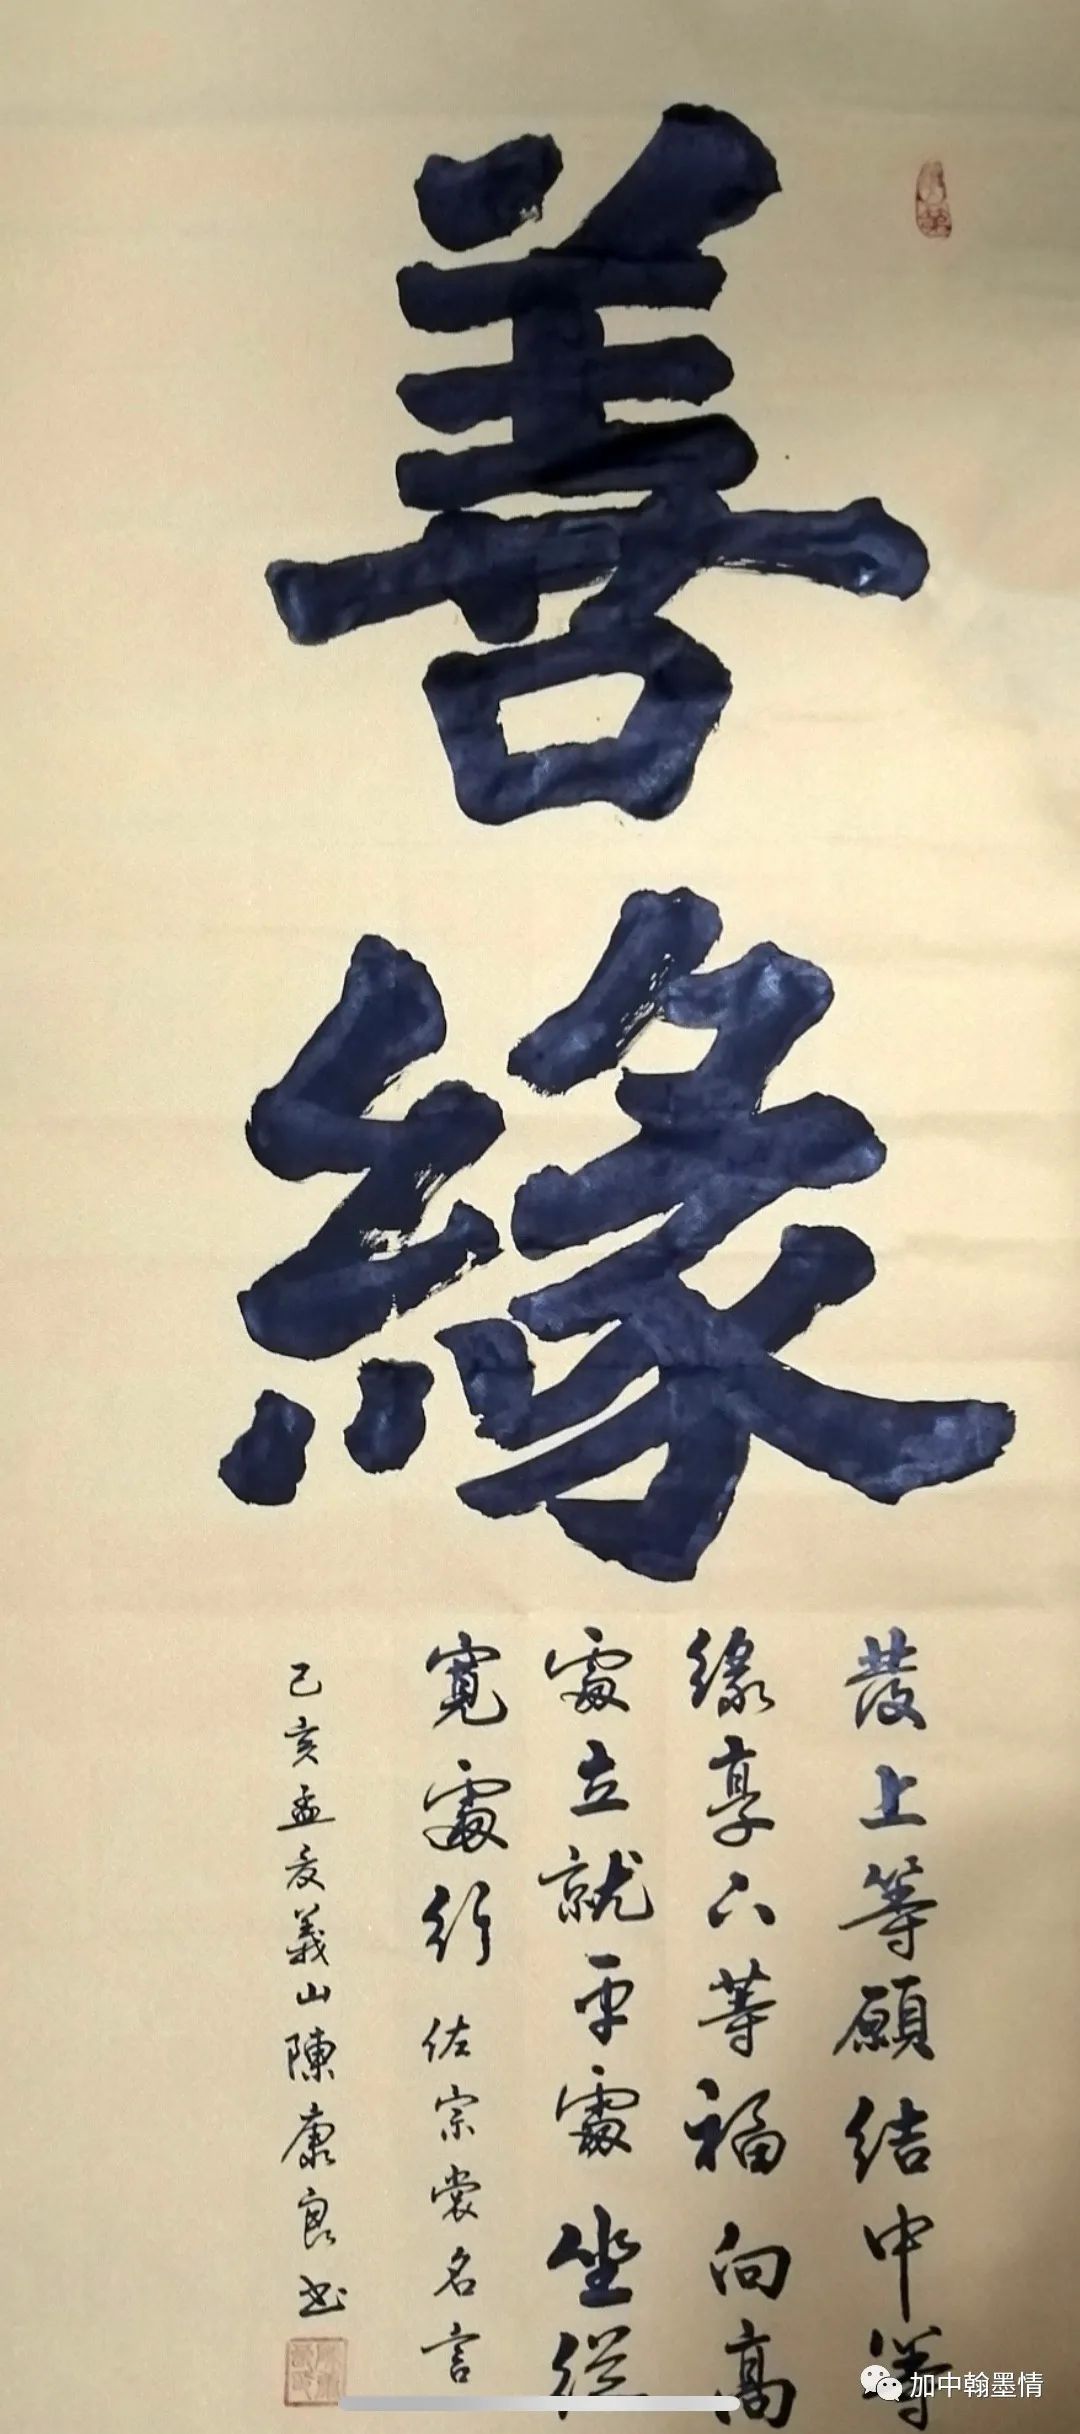 善緣
發上等願結中等
緣享下等福向高
處立就平處坐從
寬處行 佐宗棠名言
己亥孟夏義山陳康良書
加中翰墨情